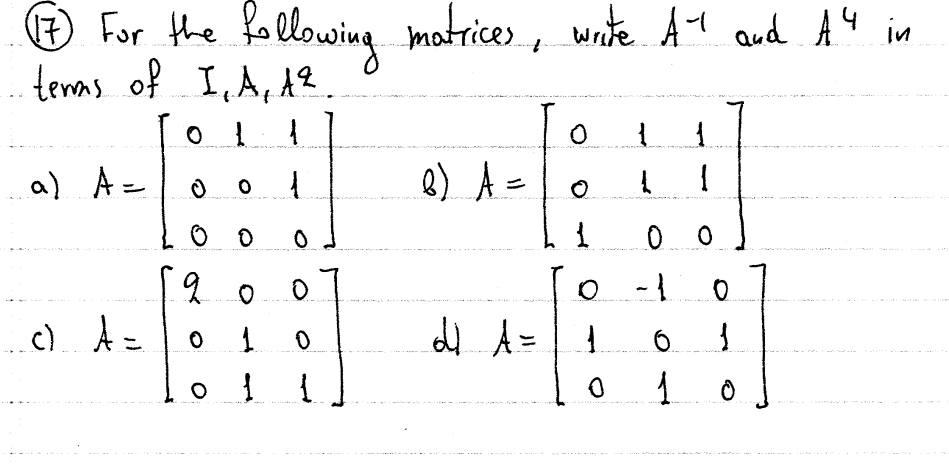 (17) For the following matrices, write A⁻¹ and A⁴ in
terms of I, A, A².
a) A = [0 1 1; 0 0 1; 0 0 0] b) A = [0 1 1; 0 1 1; 1 0 0]
c) A = [2 0 0; 0 1 0; 0 1 1] d) A = [0 -1 0; 1 0 1; 0 1 0]